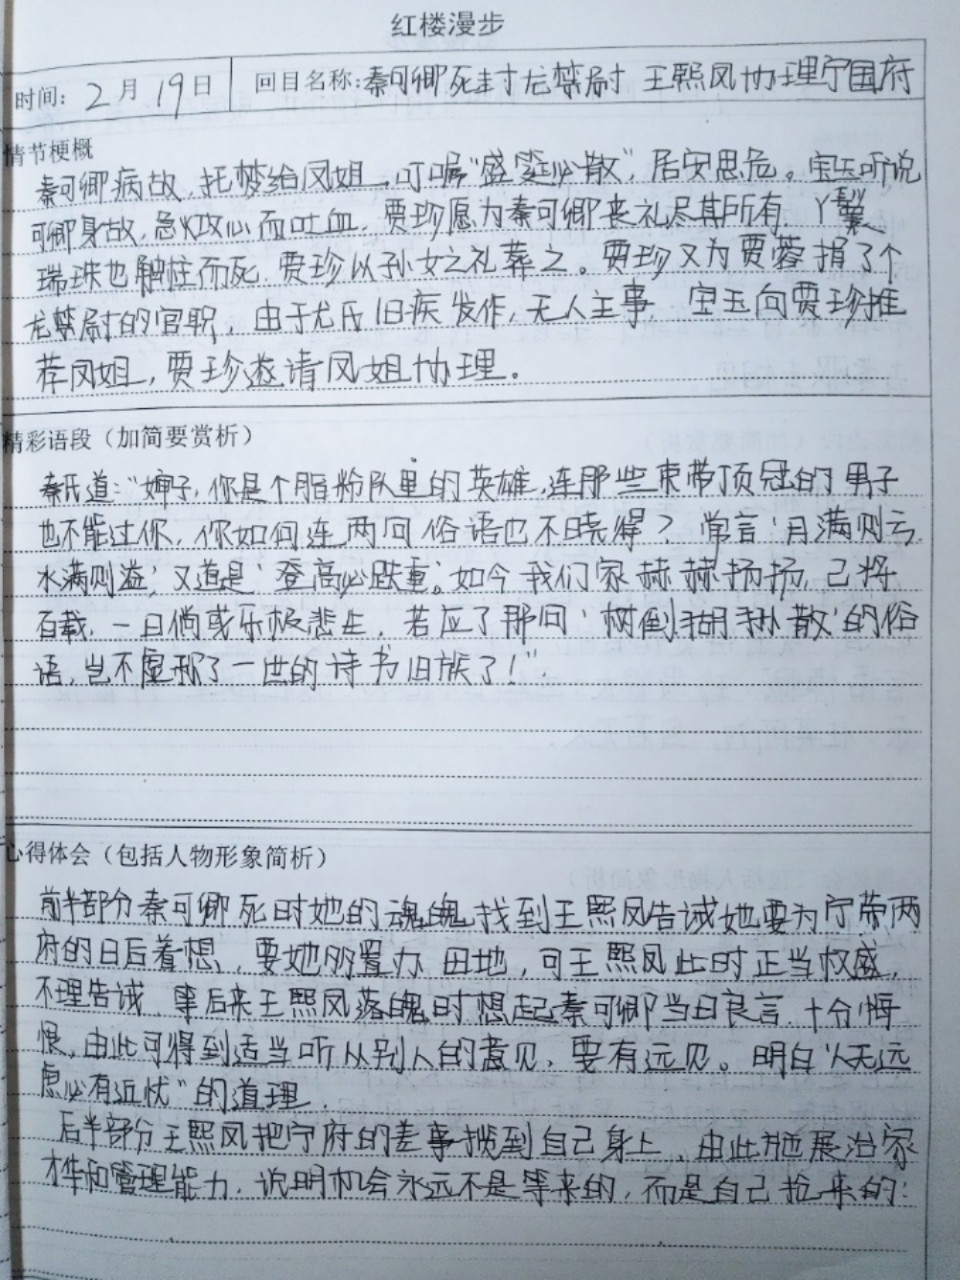 红楼漫步
时间: 2月19日 回目名称:秦可卿死封龙禁尉 王熙凤协理宁国府
情节梗概
秦可卿病故,托梦给凤姐,叮嘱"盛筵必散",居安思危。宝玉听说
可卿身故,急火攻心而吐血,贾珍愿为秦可卿丧礼尽其所有,丫鬟
瑞珠也触柱而死,贾珍以孙女之礼葬之。贾珍又为贾蓉捐了个
龙禁尉的官职,由于尤氏旧疾发作,无人主事,宝玉向贾珍推
荐凤姐,贾珍邀请凤姐协理。
精彩语段(加简要赏析)
秦氏道:"婶子,你是个脂粉队里的英雄,连那些束带顶冠的男子
也不能过你,你如何连两句俗语也不晓得?常言'月满则亏,
水满则溢',又道是'登高必跌重'。如今我们家赫赫扬扬,已将
百载,一日倘或乐极悲生,若应了那句'树倒猢狲散'的俗
语,岂不虚称了一世的诗书旧族了!"
心得体会(包括人物形象简析)
前半部分秦可卿死时她的魂魄找到王熙凤告诫她要为宁荣两
府的日后着想,要她多置办田地,可王熙凤此时正当权盛,
不理告诫,事后来王熙凤落魄时想起秦可卿当日良言,十分悔
恨,由此可得到适当听从别人的意见,要有远见。明白"人无远
虑必有近忧"的道理
后半部分王熙凤把宁府的差事揽到自己身上,由此施展治家
才华和管理能力,说明机会永远不是等来的,而是自己抢来的: